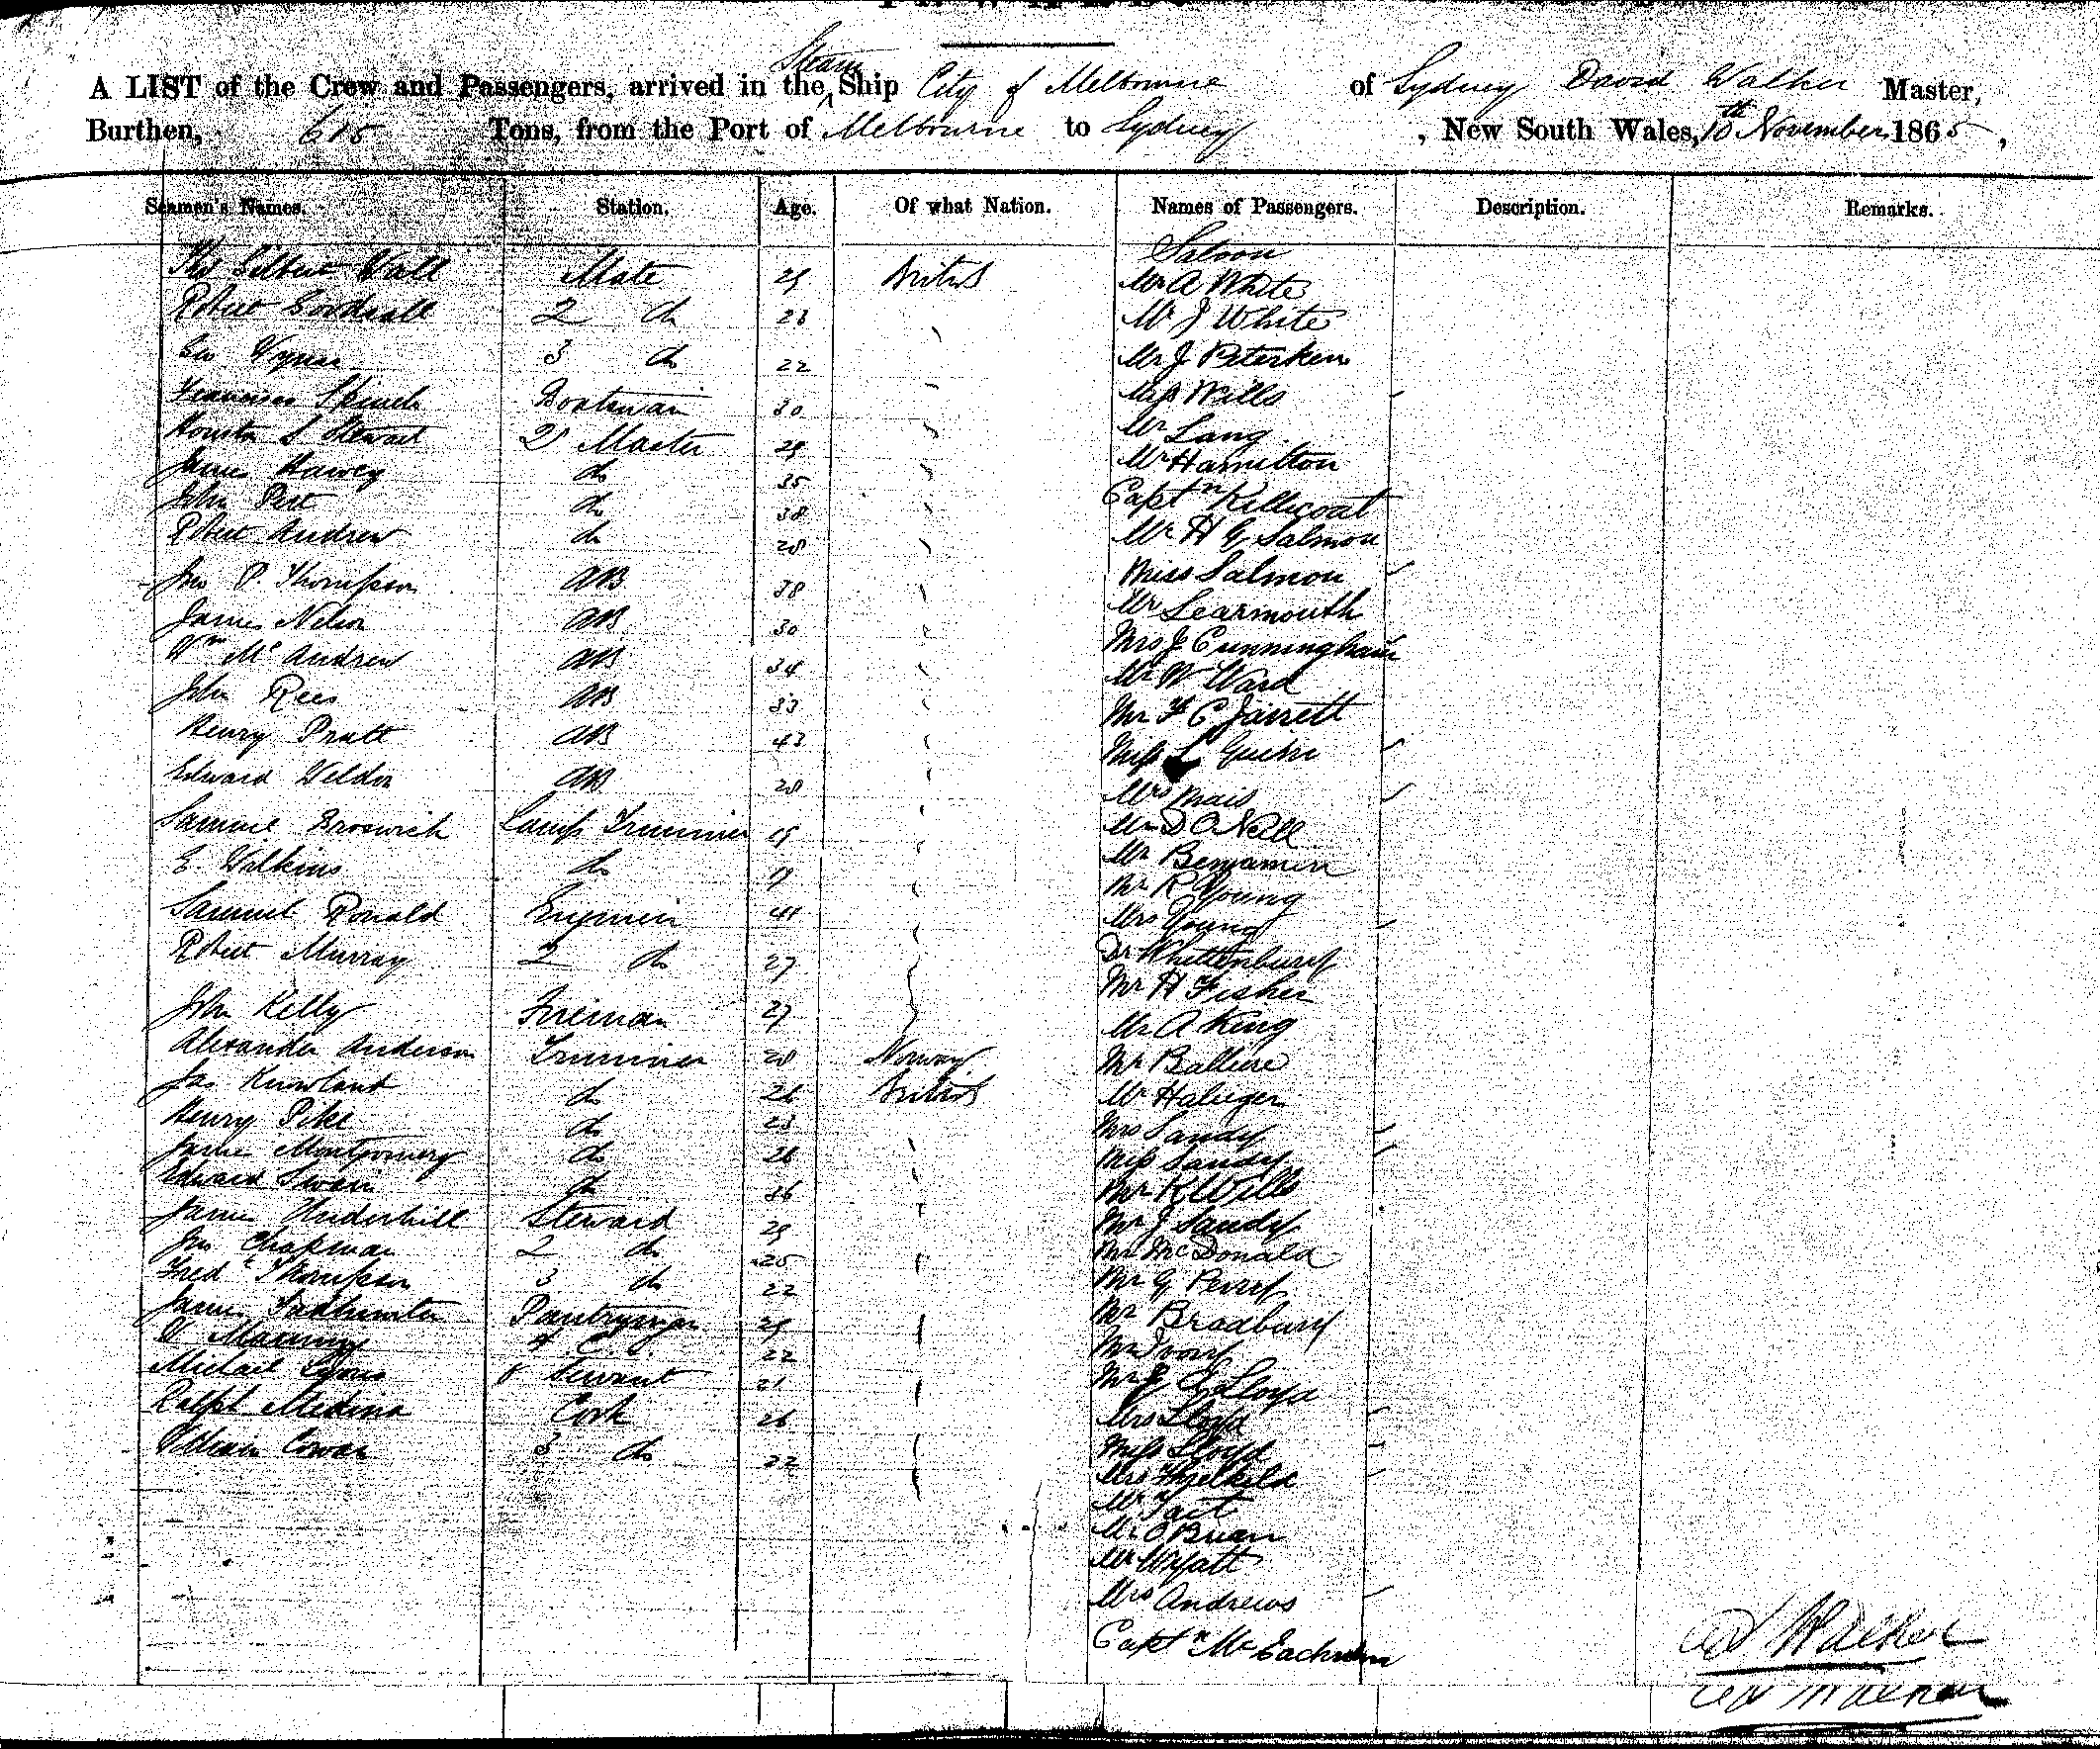 Steam
A LIST of the Crew and Passengers, arrived in the Ship City of Melbourne of Sydney David Walker Master,
Burthen, 615 Tons, from the Port of Melbourne to Sydney, New South Wales, 10th November 1865,
Seamen's Names. Station. Age. Of what Nation. Names of Passengers. Description. Remarks.
Saloon
Gilbert Wall Mate 29 British Mr A White
Robert 2 do Mr J White
Geo 3 do 22 Mr J Peterken
Francisco Boatswain 30 Miss Wills
Houston S Stewart Master Mr Lang
James Harvey do 35 Mr Hamilton
John Peet do 38 Captn Killicoat
Robert Andrew do 28 Mr H G Salmon
Jno P. Thompson AB 38 Miss Salmon
James Nelson AB 30 Mr Learmouth
Wm Mc Andrew AB 34 Mrs J Cunningham
John Rees AB 33 Mr W Ward
Henry Pratt AB 43 Mr F C Jarrett
Edward Weldon AB 28 Miss
Mrs Mais
Samuel Lamp Trimmer 19 Mr D O'Neill
E. Wilkins do 19 Mr Benjamin
Mr R Young
Samuel Ronald Engineer 41 Mrs Young
Robert Murray 2 do 27 Dr Whittenbury
Mr H Fisher
John Kelly Fireman 27 Mr A King
Alexander Anderson Trimmer 28 Norway Mr
Jas Knowland do 26 British Mr
Henry Pike do 23 Mrs Sandy
James Montgomery do 28 Miss Sandy
Edward Swain do 36 Mr R Wills
James Underhill Steward 29 Mr J Sandy
Jno Chapman 2 do 25 Mr McDonald
Fredk Thompson 3 do 22 Mr G
James Pantryman 29 Mr Bradbury
22 Mr Ivory
Michael Lyons Servant 21 Mr Lloyd
Ralph Medina Cook 26 Mrs Lloyd
William Cowan 3 do 22 Miss Lloyd
Mrs Threlkeld
Mr Tait
Mr O'Brien
Mr Wyatt
Mrs Andrews
Captn
Walker